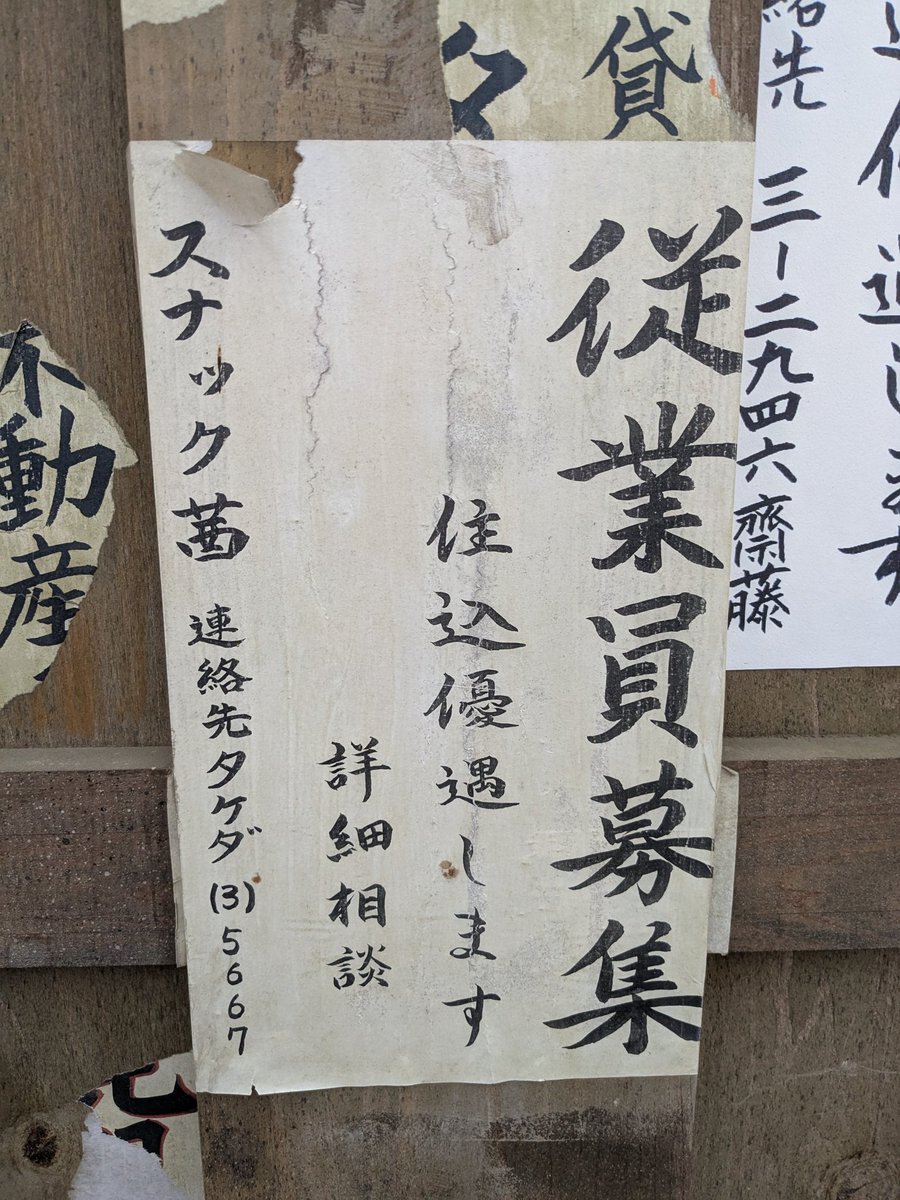 従業員募集
住込優遇します
詳細相談
スナック茜 連絡先タケダ (3)5667
先 三-二九四六 齋藤
貸
不動産